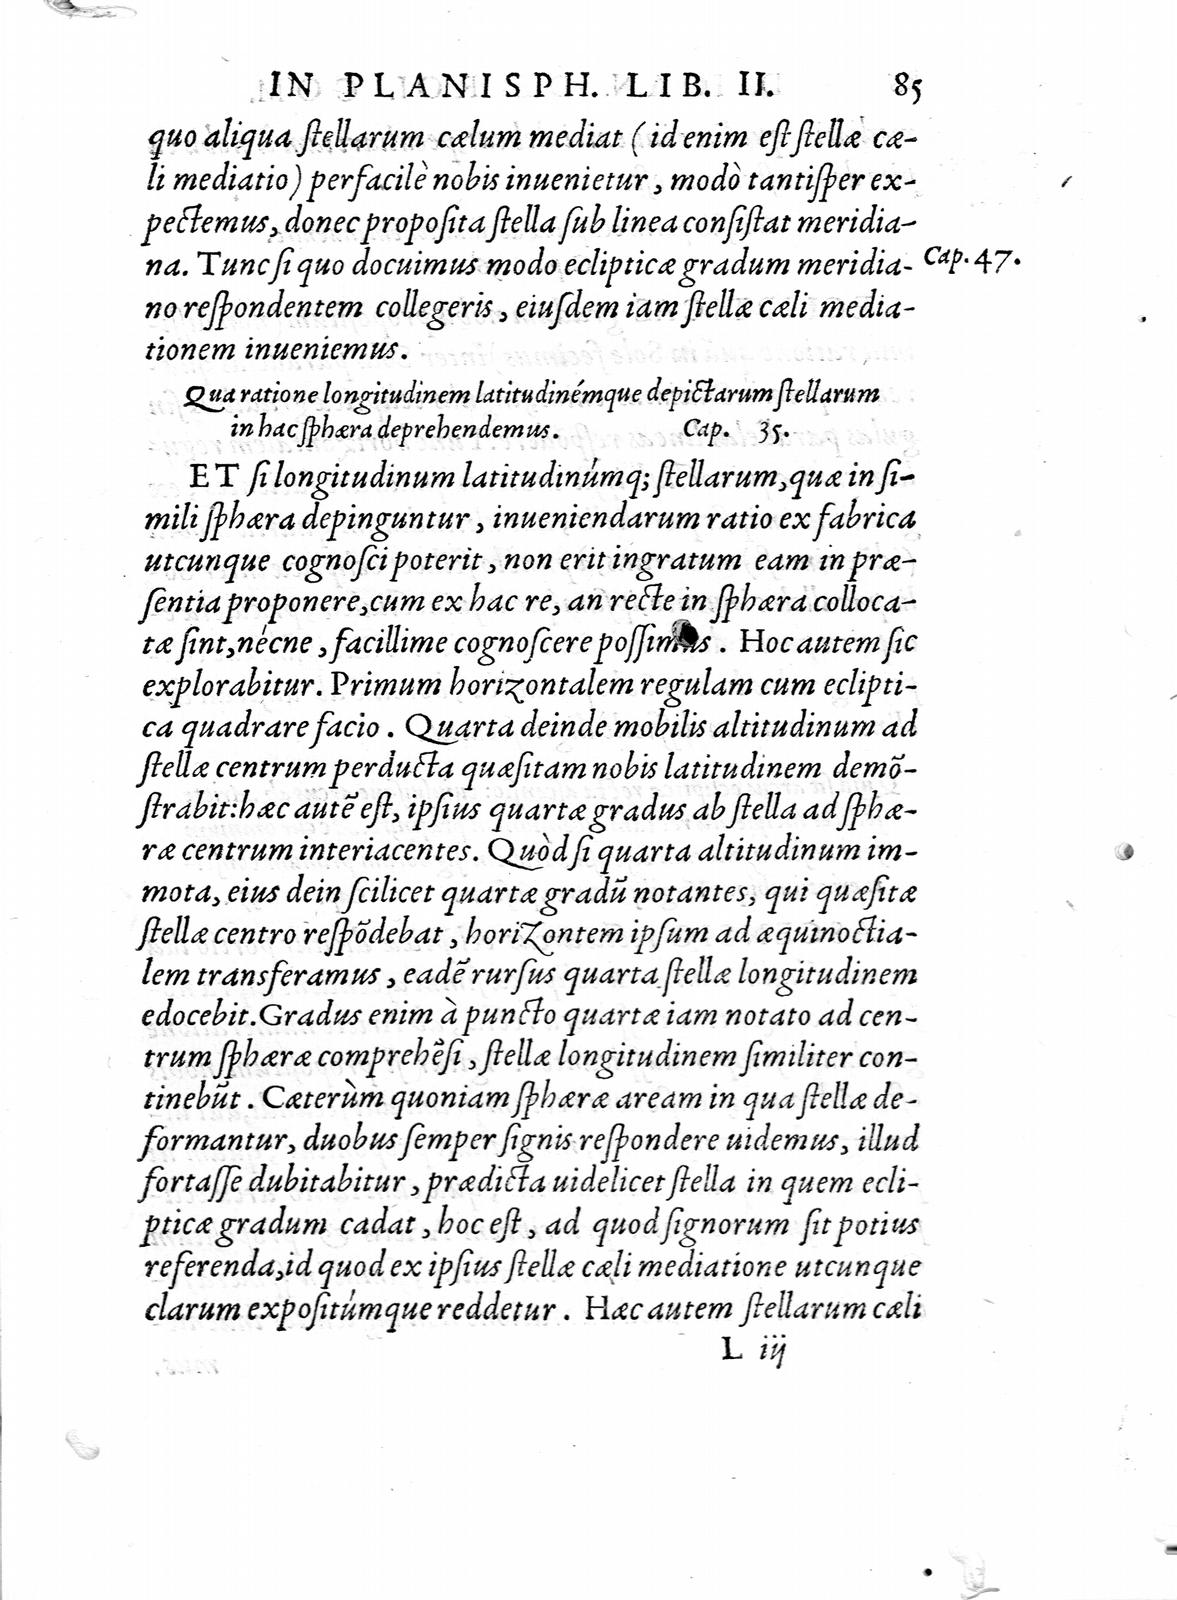 IN PLANISPH. LIB. II. 85
quo aliqua ſtellarum cælum mediat (id enim eſt ſtellæ cæ-
li mediatio) perfacilè nobis inuenietur, modò tantiſper ex-
pectemus, donec propoſita ſtella ſub linea conſiſtat meridia-
na. Tunc ſi quo docuimus modo eclipticæ gradum meridia- Cap. 47.
no reſpondentem collegeris, eiuſdem iam ſtellæ cæli media-
tionem inueniemus.
Qua ratione longitudinem latitudinémque depictarum ſtellarum
in hac ſphæra deprehendemus. Cap. 35.
ET ſi longitudinum latitudinúmq; ſtellarum, quæ in ſi-
mili ſphæra depinguntur, inueniendarum ratio ex fabrica
utcunque cognoſci poterit, non erit ingratum eam in præ-
ſentia proponere, cum ex hac re, an recte in ſphæra colloca-
tæ ſint, nécne, facillime cognoſcere poſſimus. Hoc autem ſic
explorabitur. Primum horizontalem regulam cum eclipti-
ca quadrare facio. Quarta deinde mobilis altitudinum ad
ſtellæ centrum perducta quæſitam nobis latitudinem demõ-
ſtrabit: hæc autẽ eſt, ipſius quartæ gradus ab ſtella ad ſphæ-
ræ centrum interiacentes. Quòd ſi quarta altitudinum im-
mota, eius dein ſcilicet quartæ gradũ notantes, qui quæſitæ
ſtellæ centro reſpõdebat, horizontem ipſum ad æquinoctia-
lem transferamus, eadẽ rurſus quarta ſtellæ longitudinem
edocebit. Gradus enim à puncto quartæ iam notato ad cen-
trum ſphæræ comprehẽſi, ſtellæ longitudinem ſimiliter con-
tinebũt. Cæterùm quoniam ſphæræ aream in qua ſtellæ de-
formantur, duobus ſemper ſignis reſpondere uidemus, illud
fortaſſe dubitabitur, prædicta uidelicet ſtella in quem ecli-
pticæ gradum cadat, hoc eſt, ad quod ſignorum ſit potius
referenda, id quod ex ipſius ſtellæ cæli mediatione utcunque
clarum expoſitúmque reddetur. Hæc autem ſtellarum cæli
L iij